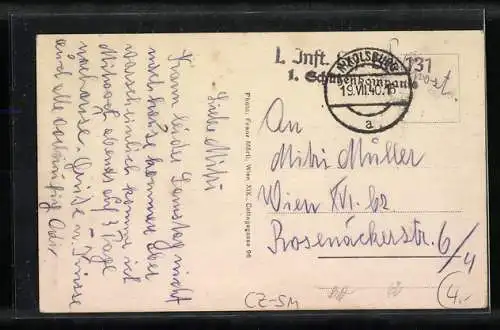 Liebe Mitzi
Kann leider Samstag nicht
nach Hause kommen aber
warscheinlich komme ich
Mitwoch abends auf 3 Tage
nachhause. Grüße u. Küsse
auch alle
Photo: Franz Mörtl, Wien XIX, Collingasse 96
I. Inft. 131
1. Schützenkompanie
NIKOLSBURG
19.VII.40.
a
An
Mitzi Müller
Wien XVI. bz
Rosenackerstr. 6/4
CZ-SM
4.-